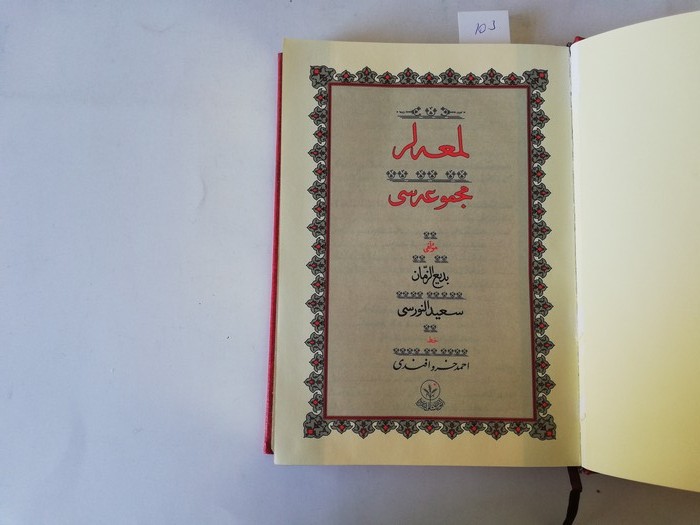 10.3
لمعه‌لر
مجموعه‌سی
مؤلفی
بديع الزمان
سعيد النورسی
خط
احمد خسرو افندی